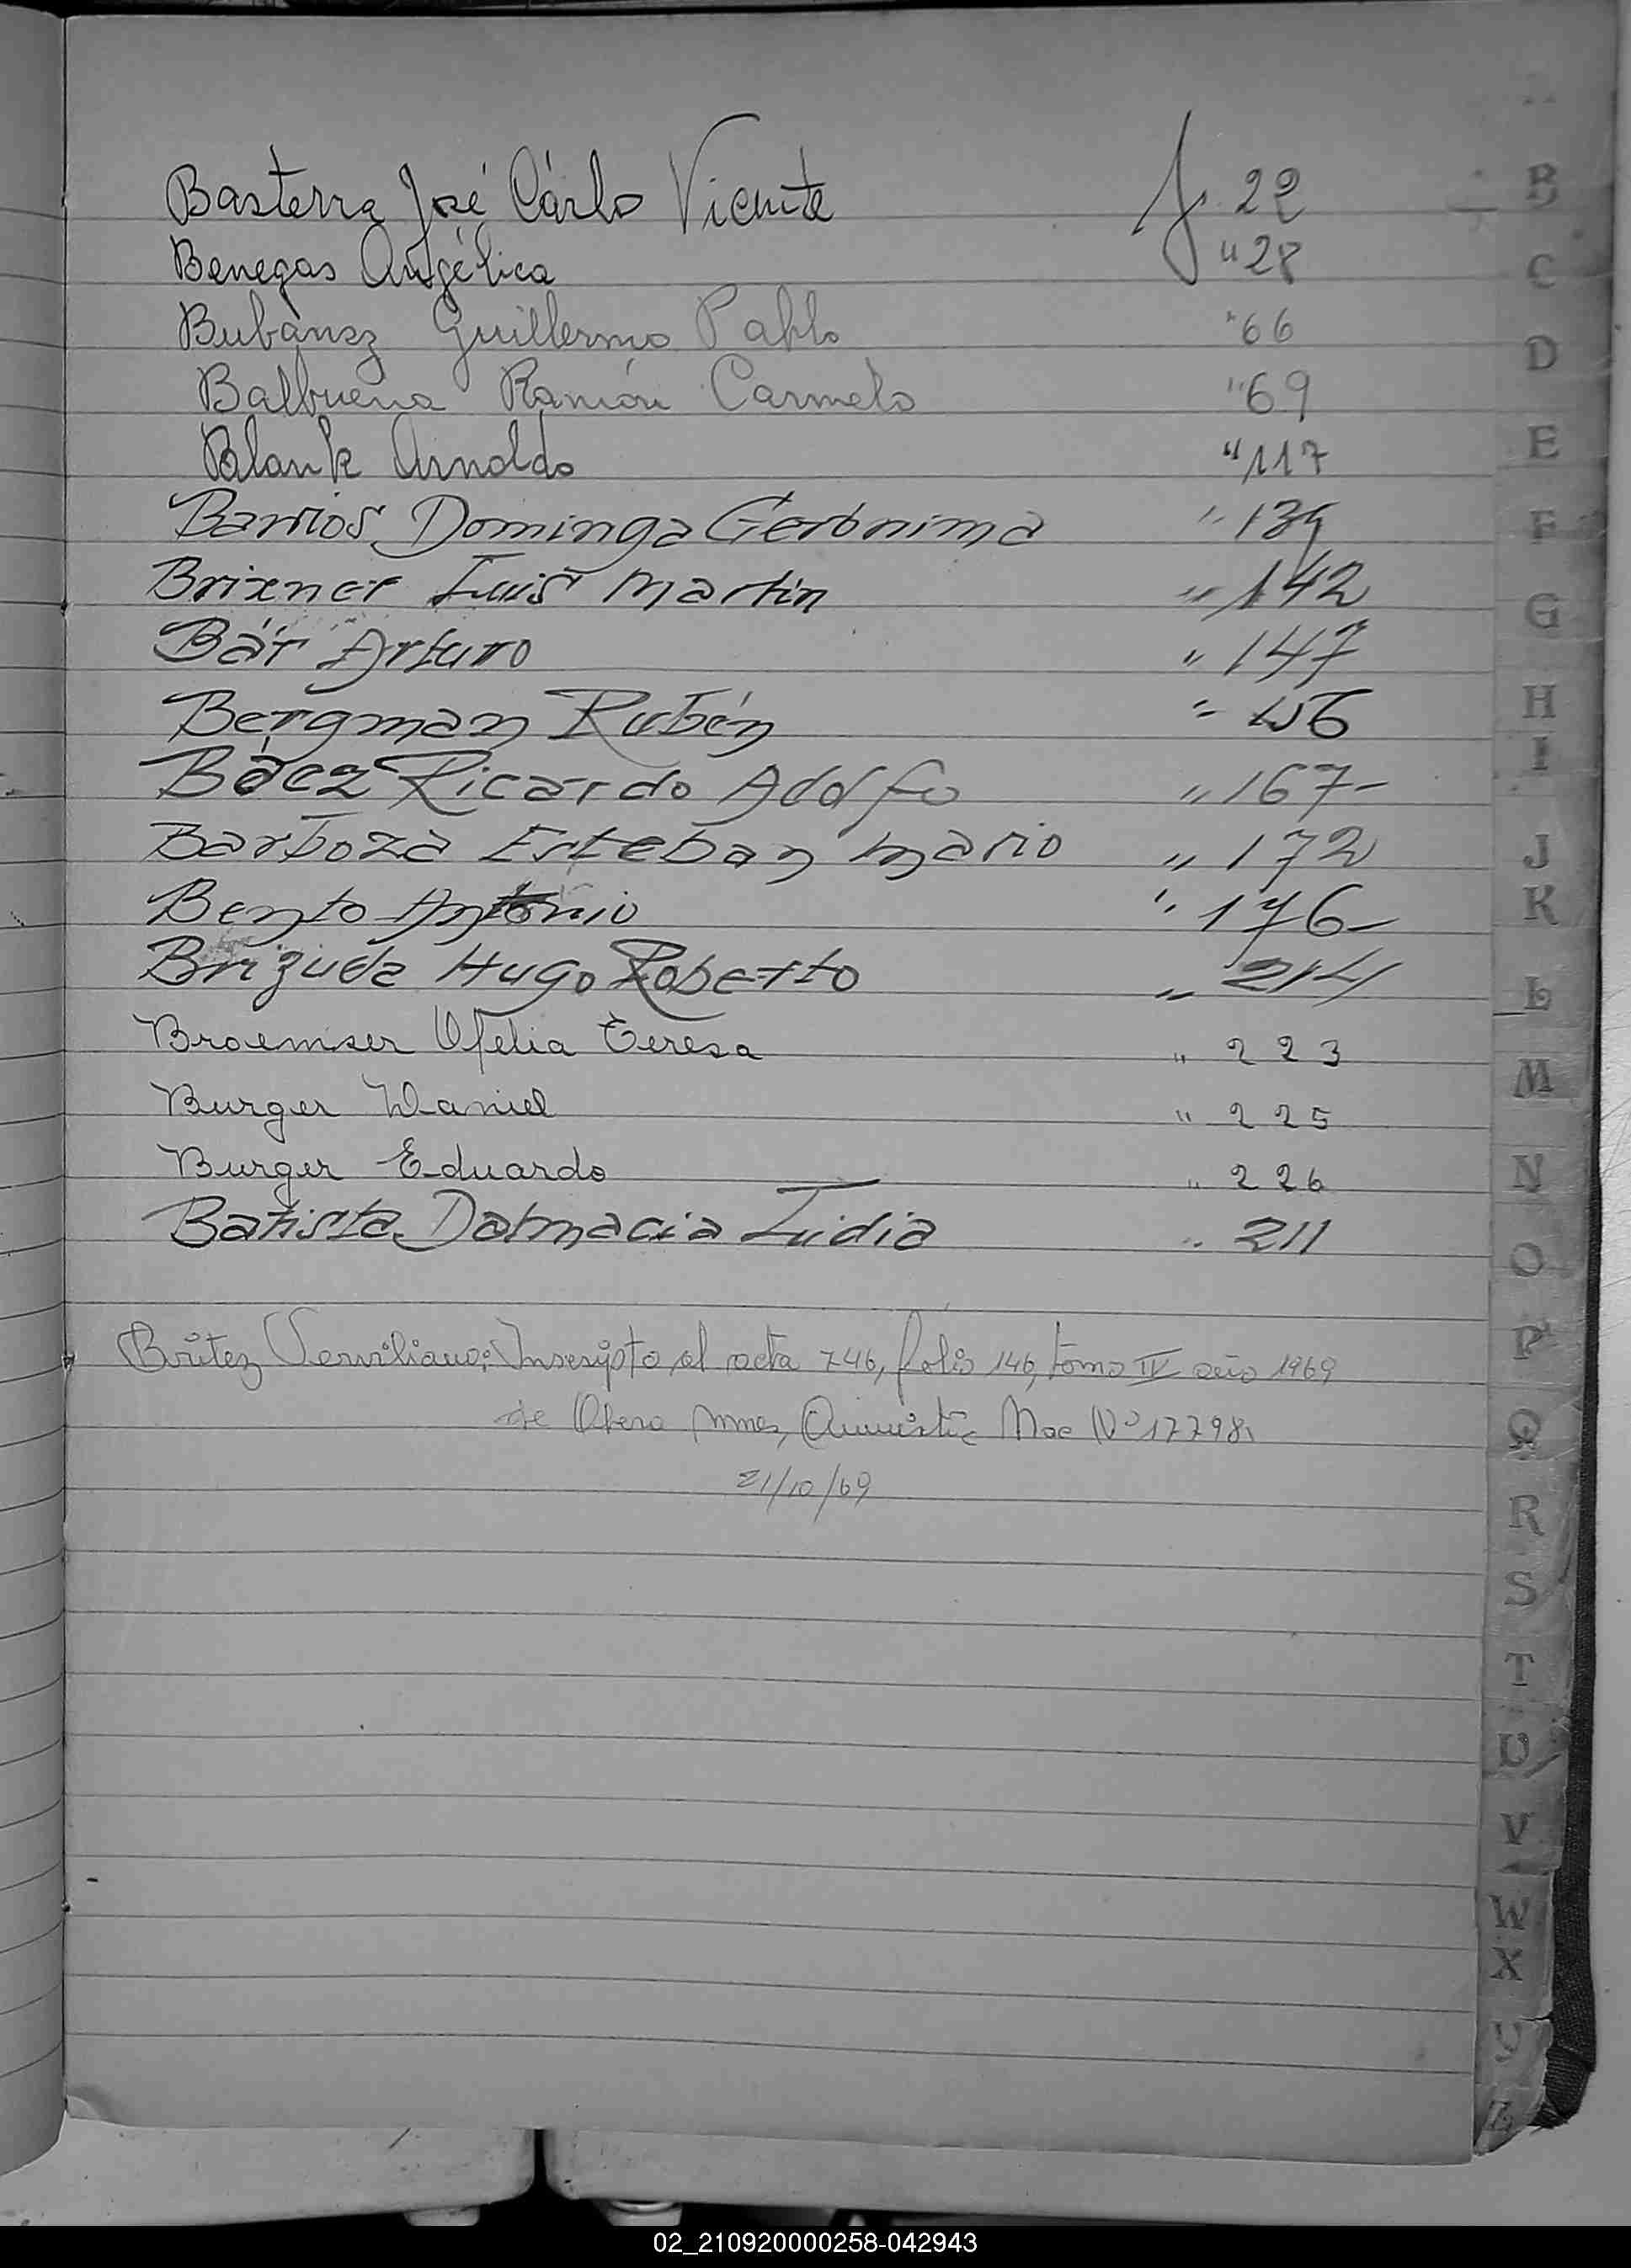 Basterra José Cárlo Vicente f. 22
Benegas Angélica " 28
Bubansz Guillermo Pablo " 66
Balbuena Ramón Carmelo " 69
Blank Arnoldo " 117
Barrios Dominga Gerónima " 139
Brixner Luis Martín " 142
Bär Arturo " 147
Bergman Rubén " 156
Báez Ricardo Adolfo " 167-
Barboza Esteban Mario " 172
Bento Antonio " 176-
Brizuela Hugo Roberto " 214
Broemser Ofelia Teresa " 223
Burger Daniel " 225
Burger Eduardo " 226
Batista Dalmacia Lidia " 211
Britez Serviliano: Inscripto al acta 746, folio 146, tomo IV año 1969
de Obera Mnes, Nac Nº 17798
21/10/69
B
C
D
E
F
G
H
I
J
K
L
M
N
O
P
Q
R
S
T
U
V
W
X
Y
Z
02_210920000258-042943